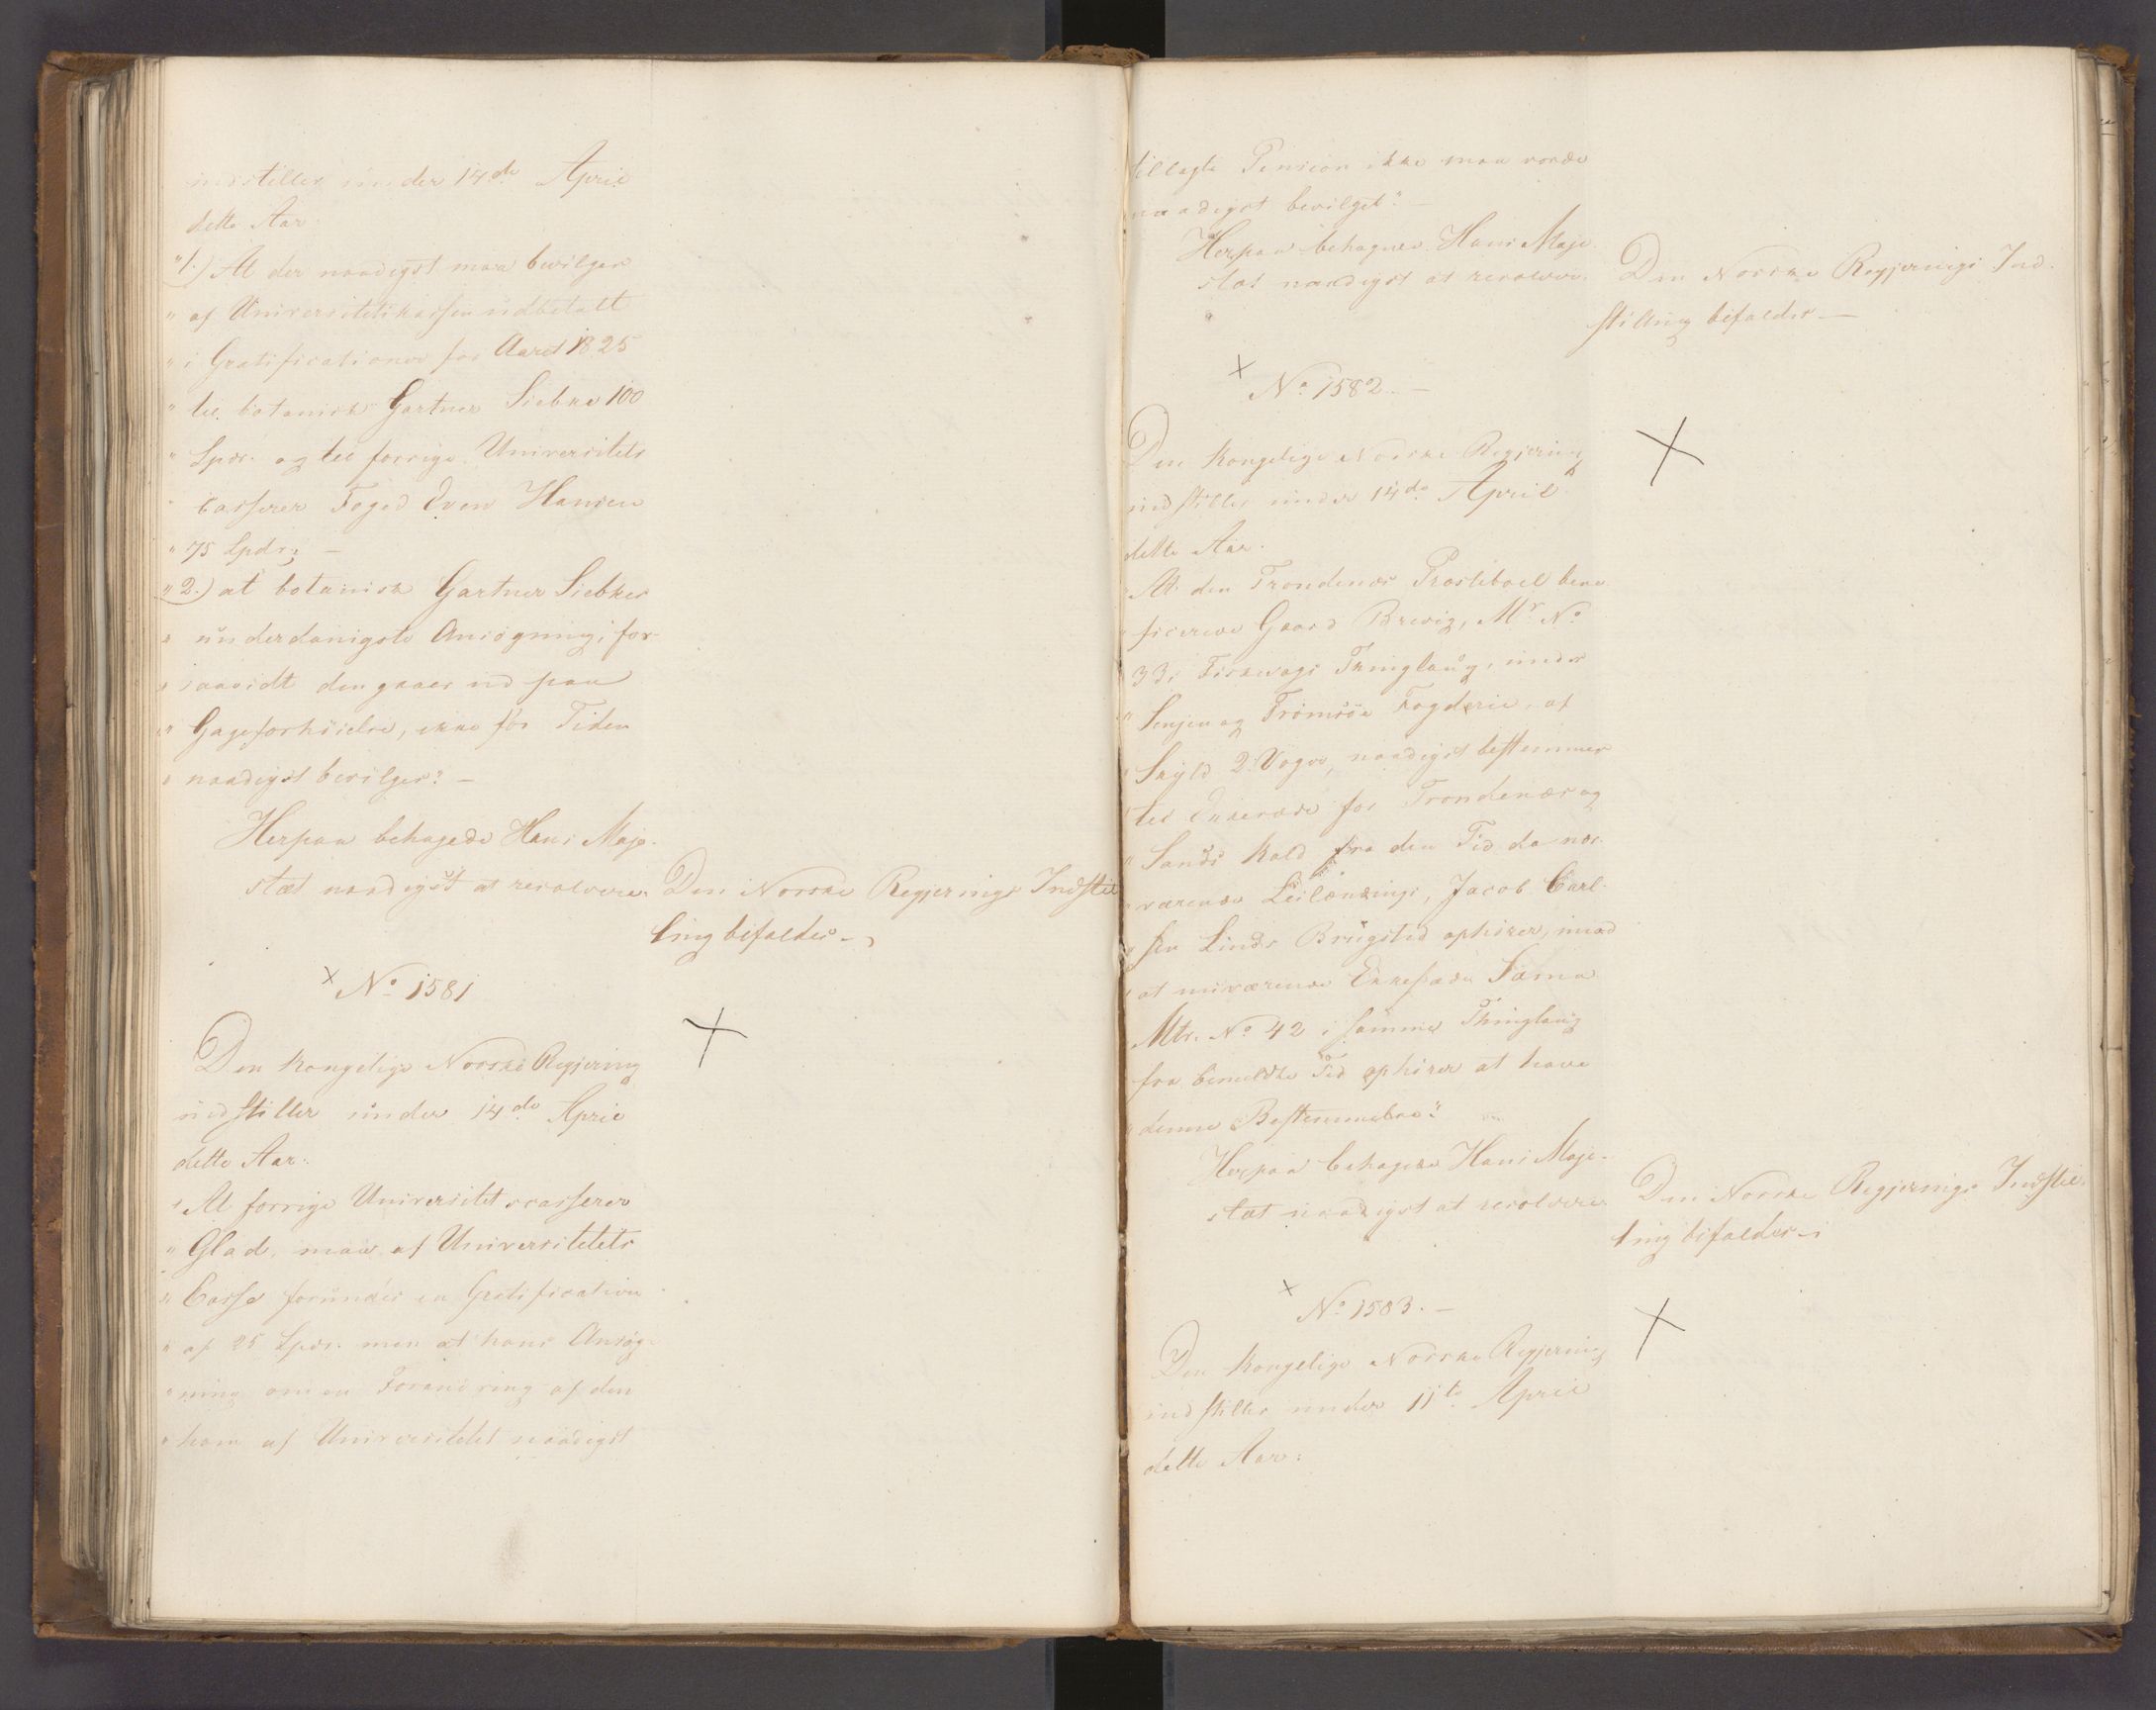 indstiller under 14de April
dette Aar:
"1.) At der naadigst maa bevilges
" af Universitetskassen udbetalt
" i Gratificationer for Aaret 1825
" til botanisk Gartner Siebke 100
" Spdr. og til forrige Universitets
" casserer Foged Even Hansen
" 75 Spdr; —
"2.) at botanisk Gartner Siebkes
" underdanigste Ansøgning, for-
" saavidt den gaaer ud paa
" Gageforhöielse, ikke for Tiden
" naadigst bevilges". —
Herpaa behagede Hans Maje-
stæt naadigst at resolvere:
Den Norske Regjerings Indstil
ling bifaldes. —
× No 1581
Den Kongelige Norske Regjering
indstiller under 14de April
dette Aar:
" At forrige Universitetscasserer
" Glad, maa af Universitetets
" Casse forundes en Gratification
" af 25 Spdr. men at hans Ansøg-
" ning om en Forandring af den
" ham af Universitetet naadigst
tillagte Pension ikke maa vorde
naadigst bevilget". —
Herpaa behagede Hans Maje-
stæt naadigst at resolvere:
Den Norske Regjerings Ind-
stilling bifaldes. —
× No 1582. —
Den Kongelige Norske Regjering
indstiller under 14de April
dette Aar:
At den Trondenæs Præstebol bene
" ficerede Gaard Brevig, Mr No
33 i Tinglaug, under
" Senjen og Tromsöe Fogderie, af
" Skyld 2 Voger, naadigst bestemmes
" til Enkesæde for Trondenæs og
" Sands Kald fra den Tid da nær-
" værende Leilændings, Jacob Carl-
" sen Linds Brugstid ophörer, imod
" at nuværende Enkesæde Sama
Mtr. No 42 i samme Thinglaug
fra bemeldte Tid ophörer at have
" denne Bestemmelse".
Herpaa behagede Hans Maje-
stæt naadigst at resolvere:
Den Norske Regjerings Indstil-
ling bifaldes. —
× No 1583. —
Den Kongelige Norske Regjering
indstiller under 11te April
dette Aar: